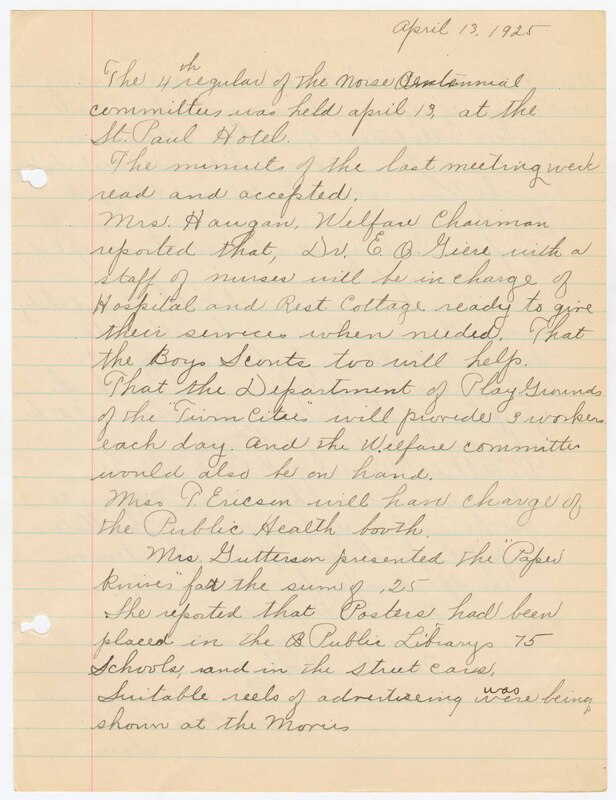 April 13, 1925
The 4th regular of the Norse Centennial
committees was held april 13, at the
St. Paul Hotel.
The minuits of the last meeting were
read and accepted.
Mrs. Haugan, Welfare Chairman
reported that, Dr. E O. Giere with a
staff of nurses will be in charge of
Hospital and Rest Cottage ready to give
their services when needed. That
the Boys Scouts too will help.
That the Department of Play Grounds
of the "Twin Cities" will provide 3 workers
each day. And the Welfare committee
would also be on hand.
Miss T. Ericson will have charge of
the Public Health booth.
Mrs. Gutterson presented the "Paper
knives" for the sum of .25
She reported that Posters had been
placed in the Public Librarys 75
Schools, and in the street cars.
Suitable reels of advertising was being
shown at the Movies